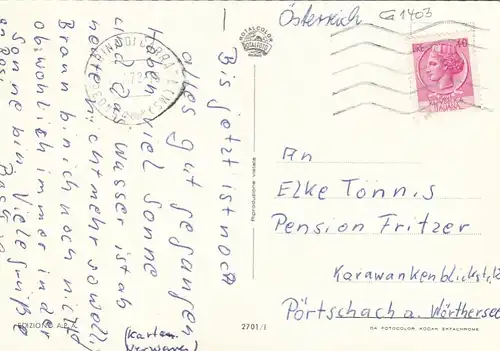 Bis jetzt ist noch
alles gut gegangen
Haben viel Sonne
und das Wasser ist ab
neuten nicht mehr so woll.
Braun bin ich noch nicht
obwohl ich immer in der
Sonne bin. Viele Grüße
(Karten
ROTALCOLOR
ROTALFOTO
Riproduzione vietata
EDIZIONI A.P.A.
2701/I
Österreich
G1403
LIRE 40
An
Elke Tönnis
Pension Fritzer
Karawankenblickstr.
Pörtschach a. Wörthersee
DA FOTOCOLOR KODAK EKTACHROME